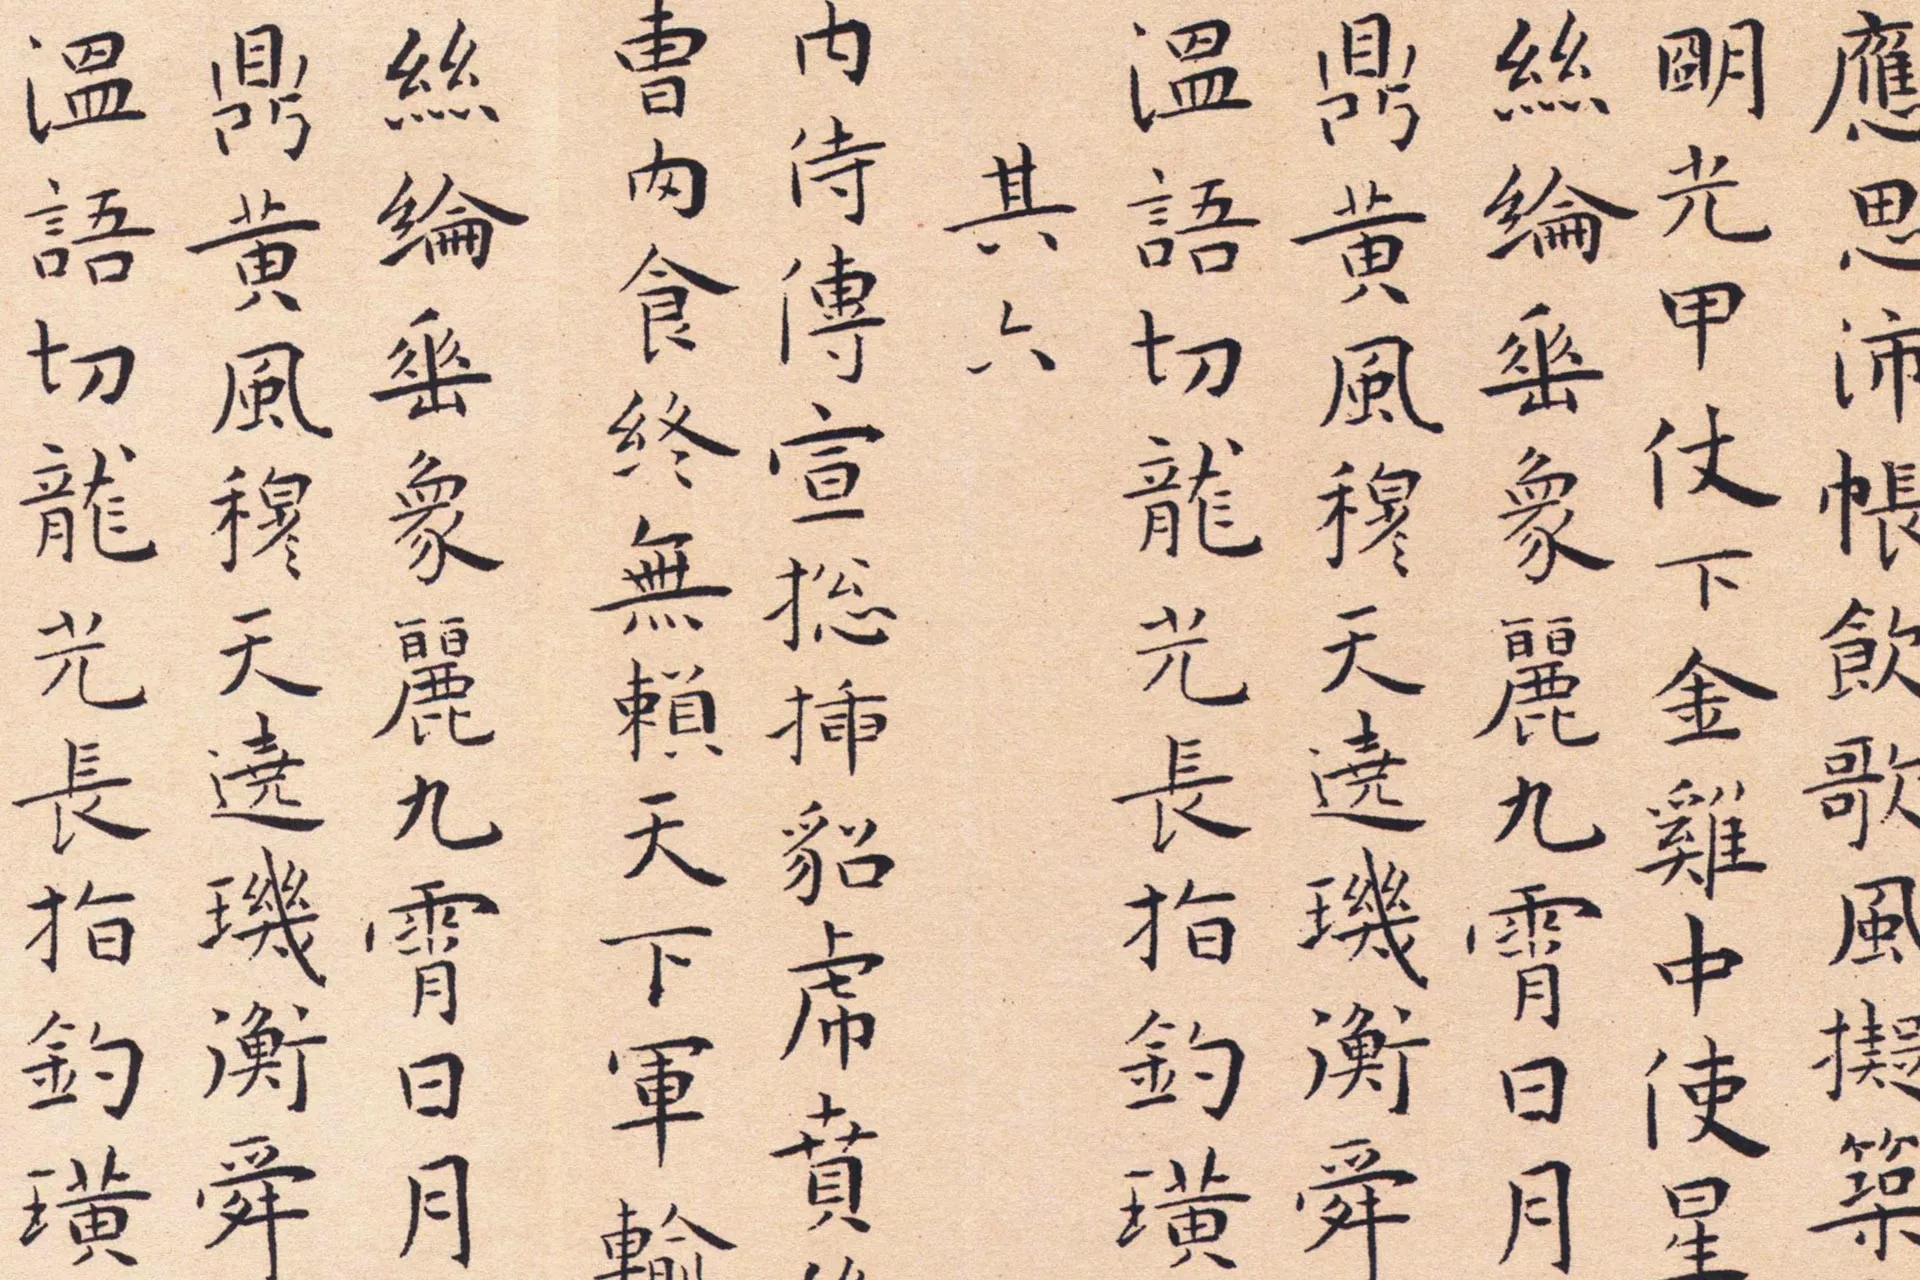 應思沛帳飲歌風擬築
明光甲仗下金雞中使星
絲綸垂象麗九霄日月
鼎黃風穆天遶璣衡舜
溫語切龍光長指鈞璜
其六
內侍傳宣揔揷貂虎賁
曹內食終無賴天下軍輸
絲綸垂象麗九霄日月
鼎黃風穆天遶璣衡舜
溫語切龍光長指鈞璜